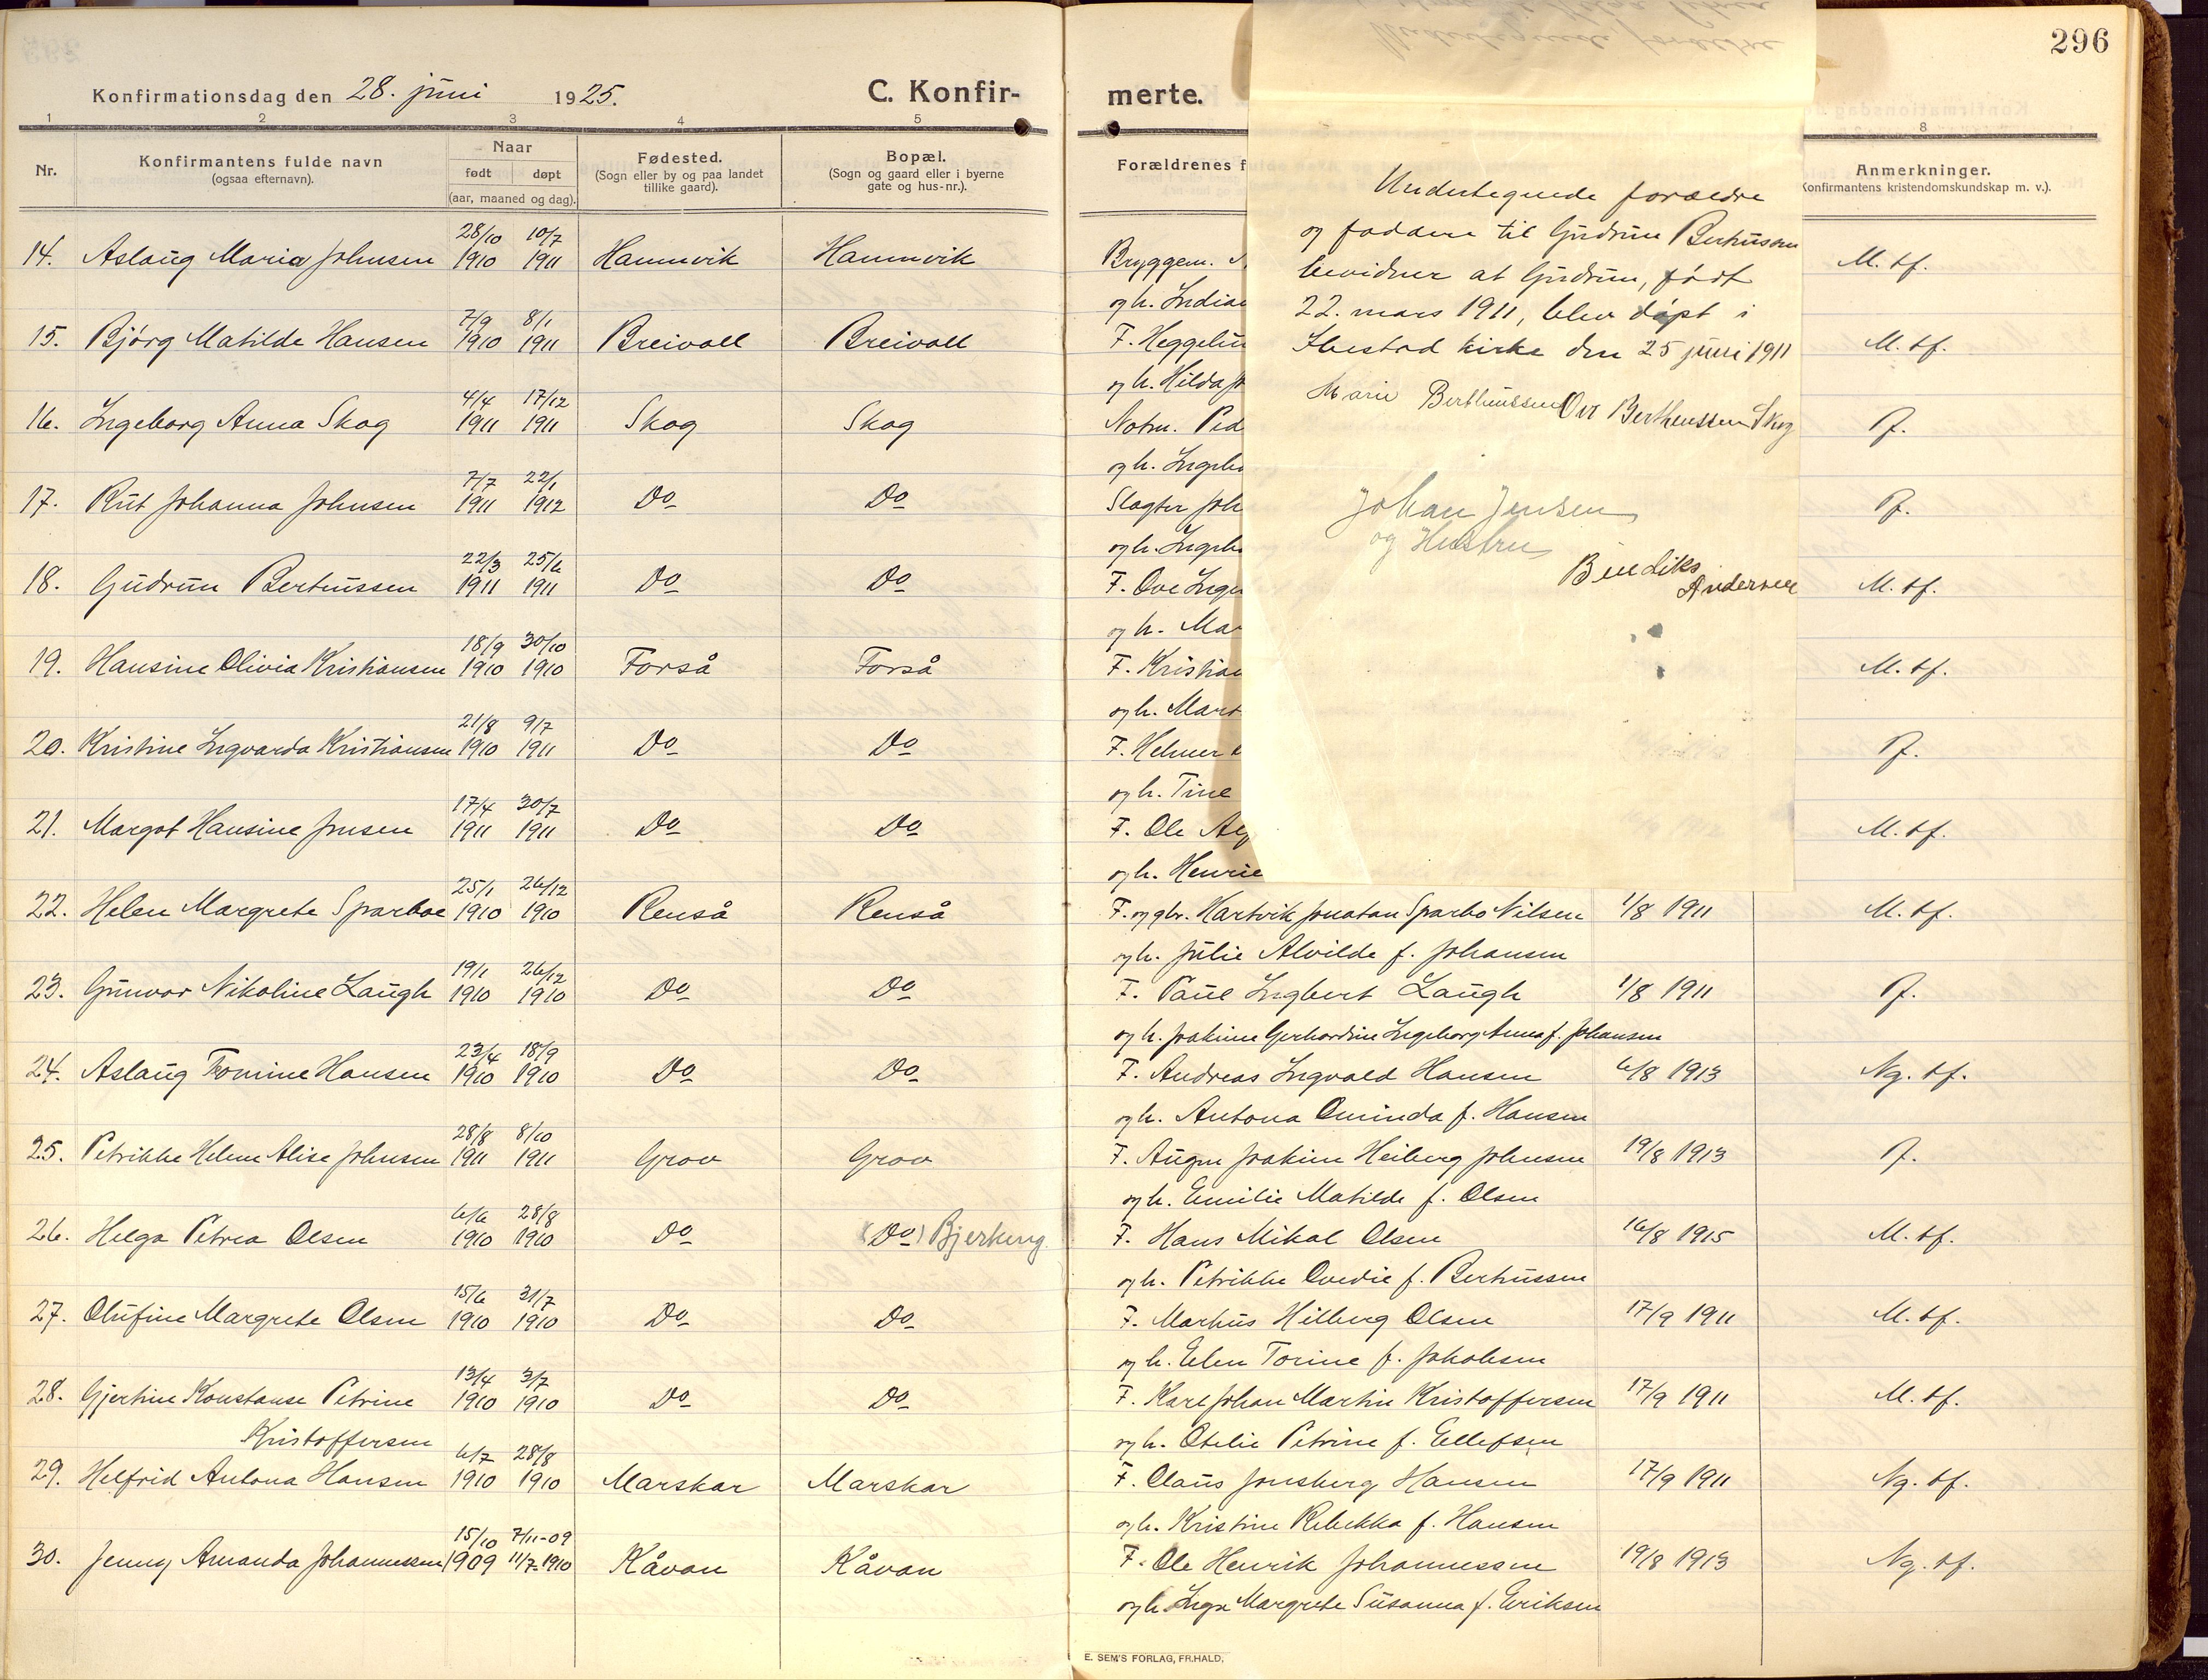 296
Konfirmationsdag den 28. juni 1925.
C. Konfir-
merte.
1 2 3 4 5
8
Nr.
Konfirmantens fulde navn
(ogsaa efternavn).
Naar
født døpt
(aar, maaned og dag).
Fødested.
(Sogn eller by og paa landet
tillike gaard).
Bopæl.
(Sogn og gaard eller i byerne
gate og hus-nr.).
Forældrenes f
Anmerkninger.
Konfirmantens kristendomskundskap m. v.).
28/10 10/7
14. Aslaug Maria Johnsen 1910 1911 Hamnvik Hamnvik
7/9 8/1
15. Bjørg Matilde Hansen 1910 1911 Breivoll Breivoll
4/4 17/12
16. Ingeborg Anna Skog 1911 1911 Skog Skog
7/7 22/1
17. Rut Johanna Johnsen 1911 1912 Do Do
22/3 25/6
18. Gudrun Bertussen 1911 1911 Do Do
18/9 30/10
19. Hansine Olivia Kristiansen 1910 1910 Forså Forså
21/8 9/7
20. Kristine Ingvarda Kristiansen 1910 1911 Do Do
17/4 30/7
21. Margot Hansine Jensen 1911 1911 Do Do
25/1 26/12
22. Helen Margrete Sparboe 1910 1910 Renså Renså
19/1 26/12
23. Gunvor Nikoline Laugh 1910 1910 Do Do
23/4 18/9
24. Aslaug Tomine Hansen 1910 1910 Do Do
28/8 8/10
25. Petrikke Helene Alise Johnsen 1911 1911 Grov Grov
6/6 28/8
26. Helga Petrea Olsen 1910 1910 Do (Do) Bjerkeng
15/6 31/7
27. Olufine Margrete Olsen 1910 1910 Do Do
13/4 3/7
28. Gjertine Konstanse Petrine 1910 1910 Do Do
Kristoffersen
6/7 28/8
29. Helfrid Antona Hansen 1910 1910 Marskar Marskar
15/10 7/11-09
30. Jenny Amanda Johannessen 1909 11/7-1910 Kåvan Kåvan
Bryggem.
og h. Indian
F. Heggelun
og h. Hilda
Notm. Ped
og h. Ingeb
Slagter Joh
og h. Ingeb
F. Ove Inge
og h. Mar
F. Kristian
og h. Mart
F. Helmer
og h. Tine
F. Ole
og h. Henrie
Undertegnede foreldre
og faddere til Gudrun Bertussen
bevidner at Gudrun, født
22. mars 1911, blev døpt i
Ibestad kirke den 25 juni 1911
Marie Bertheussen Ove Bertheussen Skog
Johan Jensen
og Hustru
Bendiks
Andersen
M. tf.
M. tf.
M. tf.
M. tf.
M. tf.
F. og gbr. Hartvik Jonatan Sparbo Nilsen 1/8 1911 M. tf.
og h. Julie Alvilde f. Johansen
F. Paul Ingbert Laugh 1/8 1911
og h. Joakime Gerhardine Ingeborg Anna f. Johansen
F. Andreas Ingvald Hansen 6/8 1913 Ng. tf.
og h. Antona Ominda f. Hansen
F. Augen Joakim Heiberg Johnsen 19/8 1913
og h. Emilie Matilde f. Olsen
F. Hans Mikal Olsen 16/8 1915 M. tf.
og h. Petrikke Ovedie f. Bertussen
F. Markus Hilberg Olsen 17/9 1911 M. tf.
og h. Elen Torine f. Jakobsen
F. Karl Johan Martin Kristoffersen 17/9 1911 M. tf.
og h. Otelie Petrine f. Ellefsen
F. Claus Jonsberg Hansen 17/9 1911 Ng. tf.
og h. Kristine Rebekka f. Hansen
F. Ole Henrik Johannessen 19/8 1913 Ng. tf.
og h. Inga Margrete Susanna f. Eriksen
E. SEM'S FORLAG, FR.HALD.